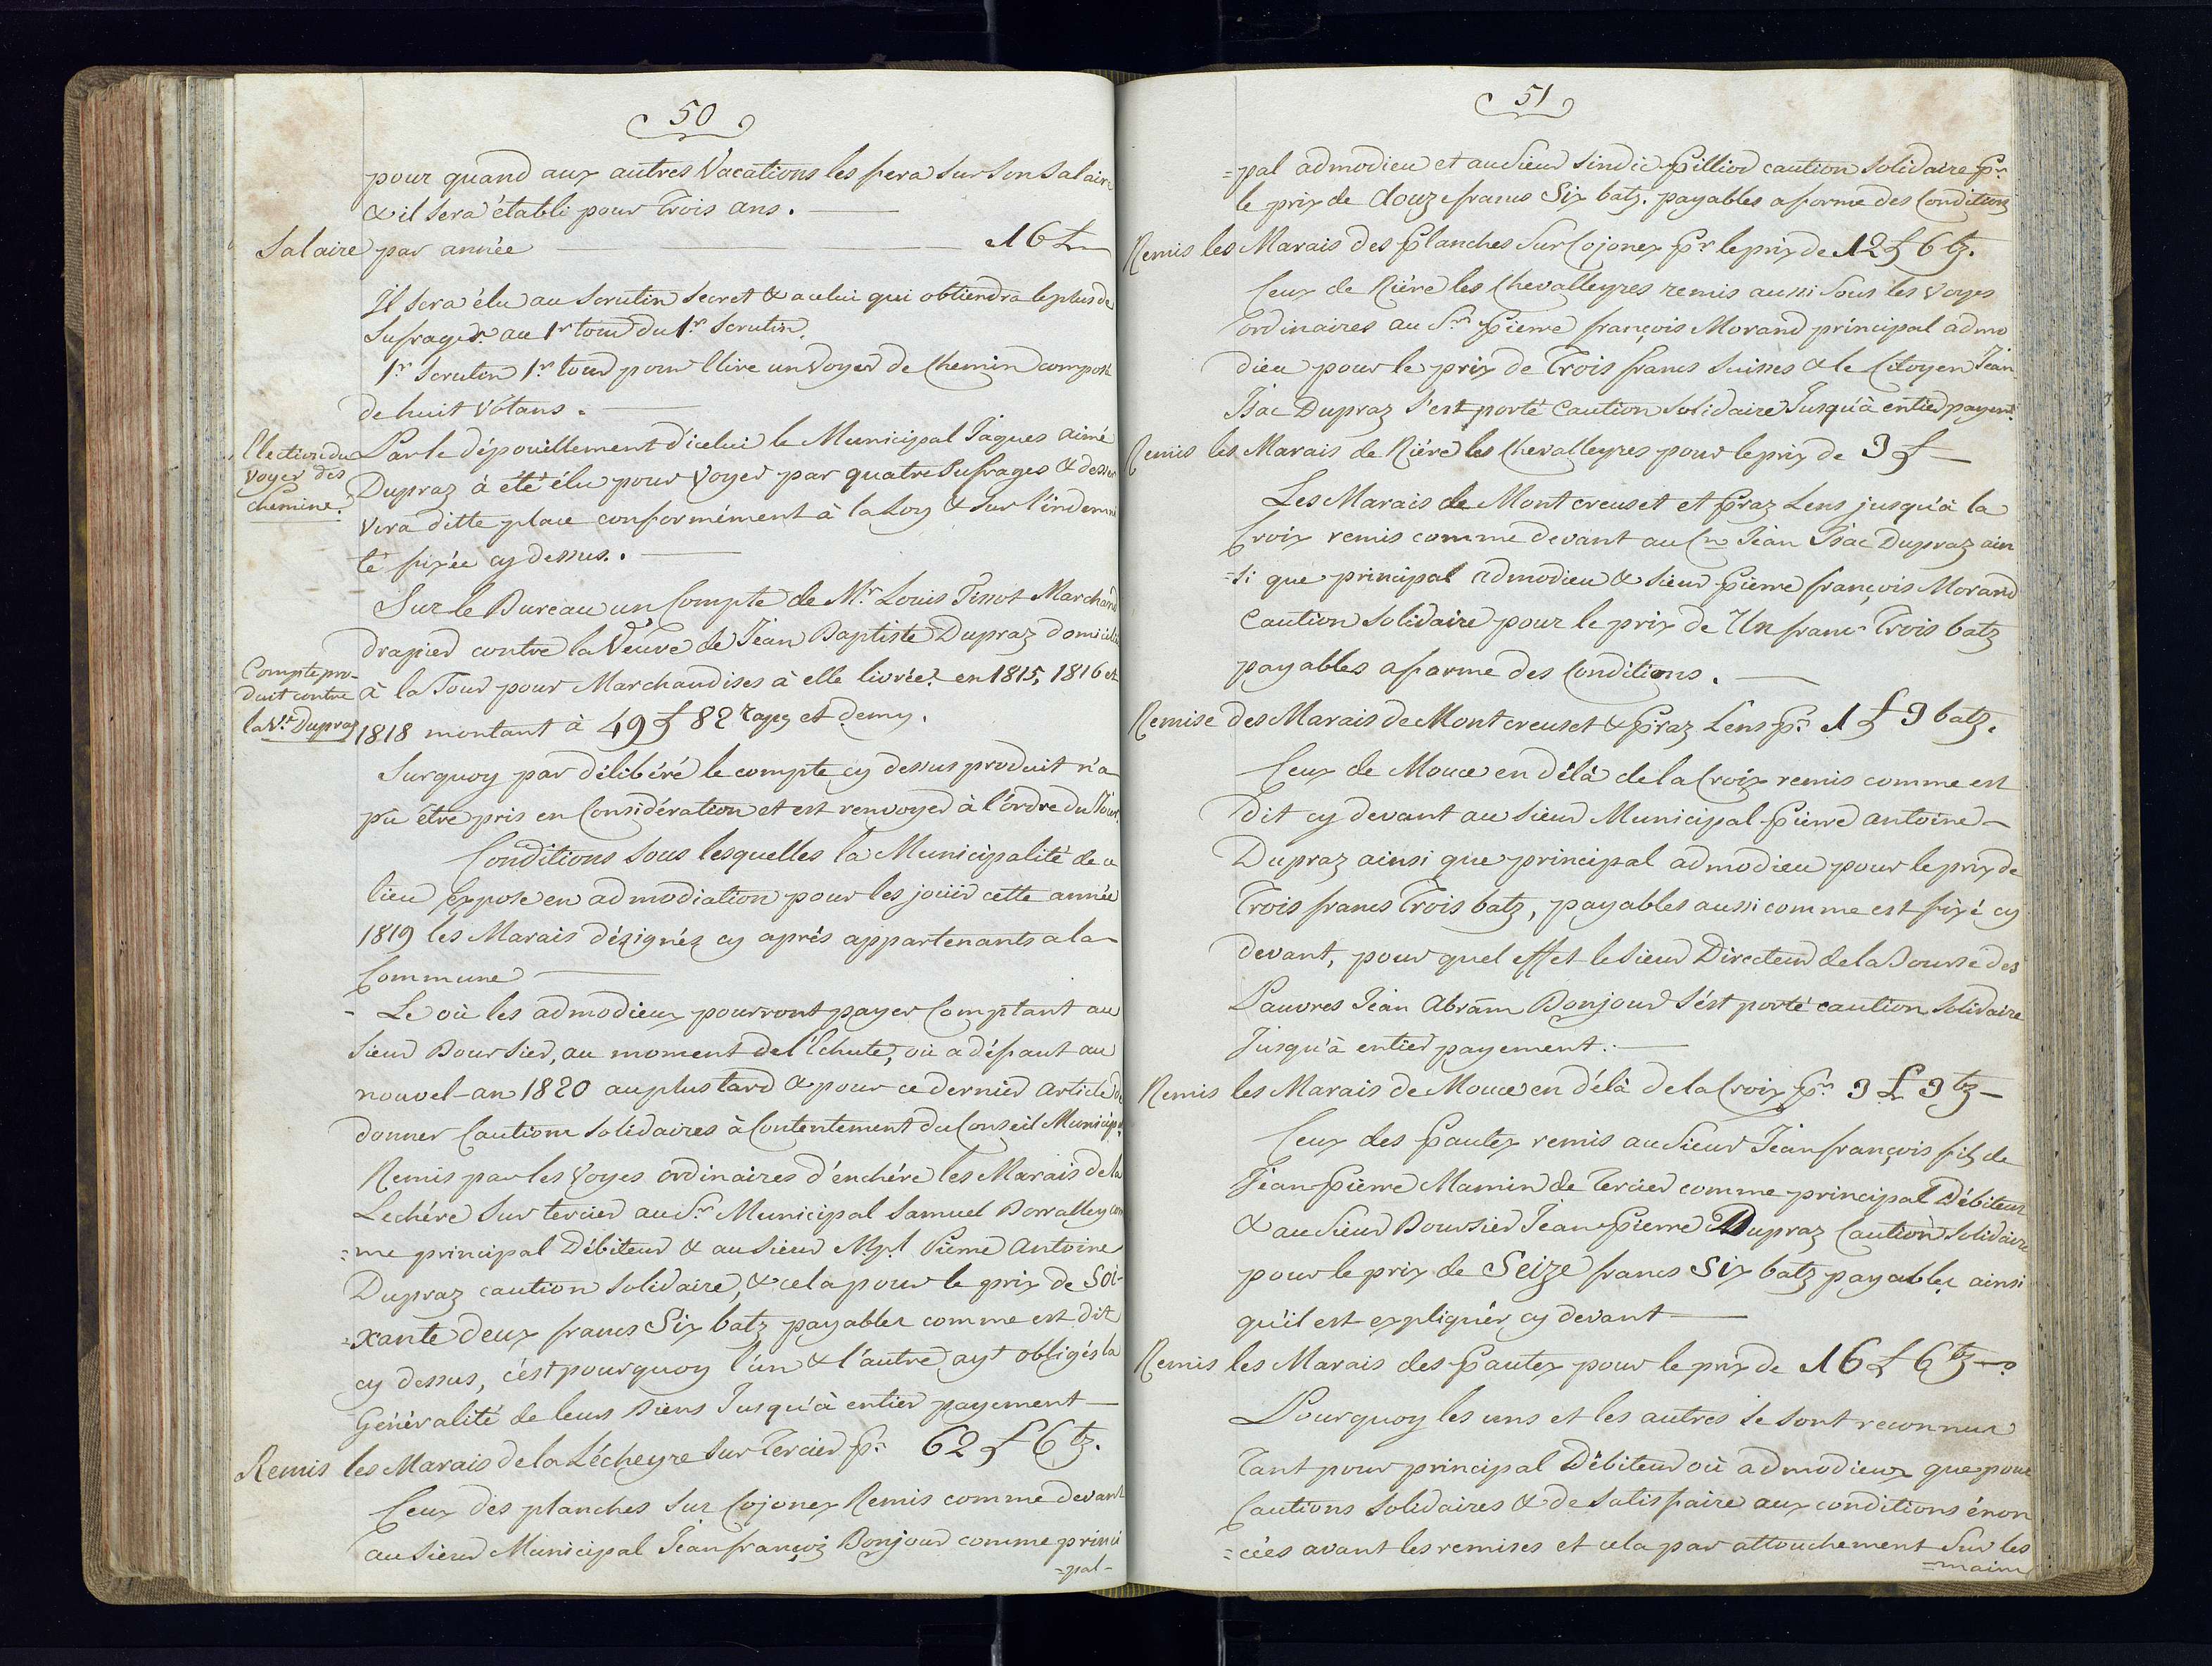 50
pour quand aux autres Vacations les fera sur son salaire
& il sera établi pour Trois ans.
Salaire par année 16 £
Il sera élu au Scrutin secret & a celui qui obtiendra le plus de
Sufrages au 1r tour du 1r Scrutin.
1r Scrutin 1r tour pour Elire un Voyer de Chemin composé
de huit Votans.
Election du
Voyer des
Chemins.
Par le dépouillement d'icelui le Municipal Jaques aimé
Dupraz à été élu pour Voyer par quatre Sufrages & desser
vira ditte place conformément à la Loy & sur l'indemni
té fixée cy dessus.
Sur le Bureau un Compte de Mr Louis Tissot Marchand
drapier contre la Veuve de Jean Baptiste Dupraz domiciliée
Compte pro-
duit contre
la Ve Dupraz
à la Tour pour Marchandises à elle livrées en 1815, 1816 et
1818 montant à 49 £ 82 rapes et demy.
Surquoy par délibéré le compte cy dessus produit n'a
pû être pris en Considération et est renvoyer à l'ordre du Jour.
Conditions sous lesquelles la Municipalité de ce
lieu Expose en admodiation pour les jouir cette année
1819 les Marais désignés cy aprés appartenants a la
Commune
- Le où les admodieux pourront payer Comptant au
Sieur Boursier, au moment de l'Echute, ou a défaut au
nouvel-an 1820 au plus tard & pour ce dernier article de
donner Cautions Solidaires à Contentement du Conseil Municipal.
Remis par les Voyes ordinaires d'enchére les Marais de la
Lechére sur tercier au Sr Municipal Samuel Borralley com
=me principal Débiteur & au sieur Mpl Pierre Antoine
Dupraz caution Solidaire, & cela pour le prix de Soi-
=xante deux francs Six batz payables comme est dit
cy dessus, c'est pourquoy l'un & l'autre ayt obligés la
Généralité de leurs Biens Jusqu'à entier payement
Remis les Marais de la Lécheyre sur Tercier pr 62 £ 6 bz.
Ceux des planches sur Cojonex Remis comme devant
au sieur Municipal Jean françois Bonjour comme princi
=pal-
51
=pal admodieu et au Sieur Sindic Pilliod caution Solidaire Pr
le prix de douze francs Six batz. payables a forme des Conditions
Remis les Marais des Planches Sur Cojonex Pr le prix de 12 £ 6 bz.
Ceux de Riére les Chevalleyres remis aussi sous les Voyes
ordinaires au Sr Pierre françois Morand principal admo
dieu pour le prix de Trois francs Suisses & le Citoyen Jean
Isac Dupraz s'est porté Caution Solidaire Jusqu'à entier payent.
Remis les Marais de Riére les Chevalleyres pour le prix de 3 £
Les Marais de Mont creuset et Praz Lens jusqu'à la
Croix remis comme devant au Cn Jean Isac Dupraz ain
=si que principal admodieu & Sieur Pierre françois Morand
Caution Solidaire pour le prix de Un franc Trois batz
payables a forme des Conditions.
Remise des Marais de Mont creuset & Praz Lens Pr 1 £ 3 batz.
Ceux de Mouce en délà de la Croix remis comme est
dit cy devant au Sieur Municipal Pierre antoine
Dupraz ainsi que principal admodieu pour le prix de
Trois francs Trois batz, payables aussi comme est fixé cy
devant, pour quel effet le Sieur Directeur de la Bourse des
Pauvres Jean Abram Bonjour s'ést porté caution Solidaire
Jusqu'à entier payement.
Remis les Marais de Mouce en délà de la Croix Pr 3 £ 3 bz
Ceux des Pautex remis au Sieur Jean françois fils de
Jean Pierre Mamin de Tercier comme principal Débiteur
& au Sieur Boursier Jean Pierre Dupraz Caution Solidaire
pour le prix de Seize francs Six batz payables ainsi
qu'il est expliquér cy devant
Remis les Marais des Pautex pour le prix de 16 £ 6 bz
Pourquoy les uns et les autres se sont reconnus
Tant pour principal Débiteur où admodieux que pour
Cautions Solidaires & de Satisfaire aux conditions énon
=cées avant les remises et cela par attouchement Sur les
=mains